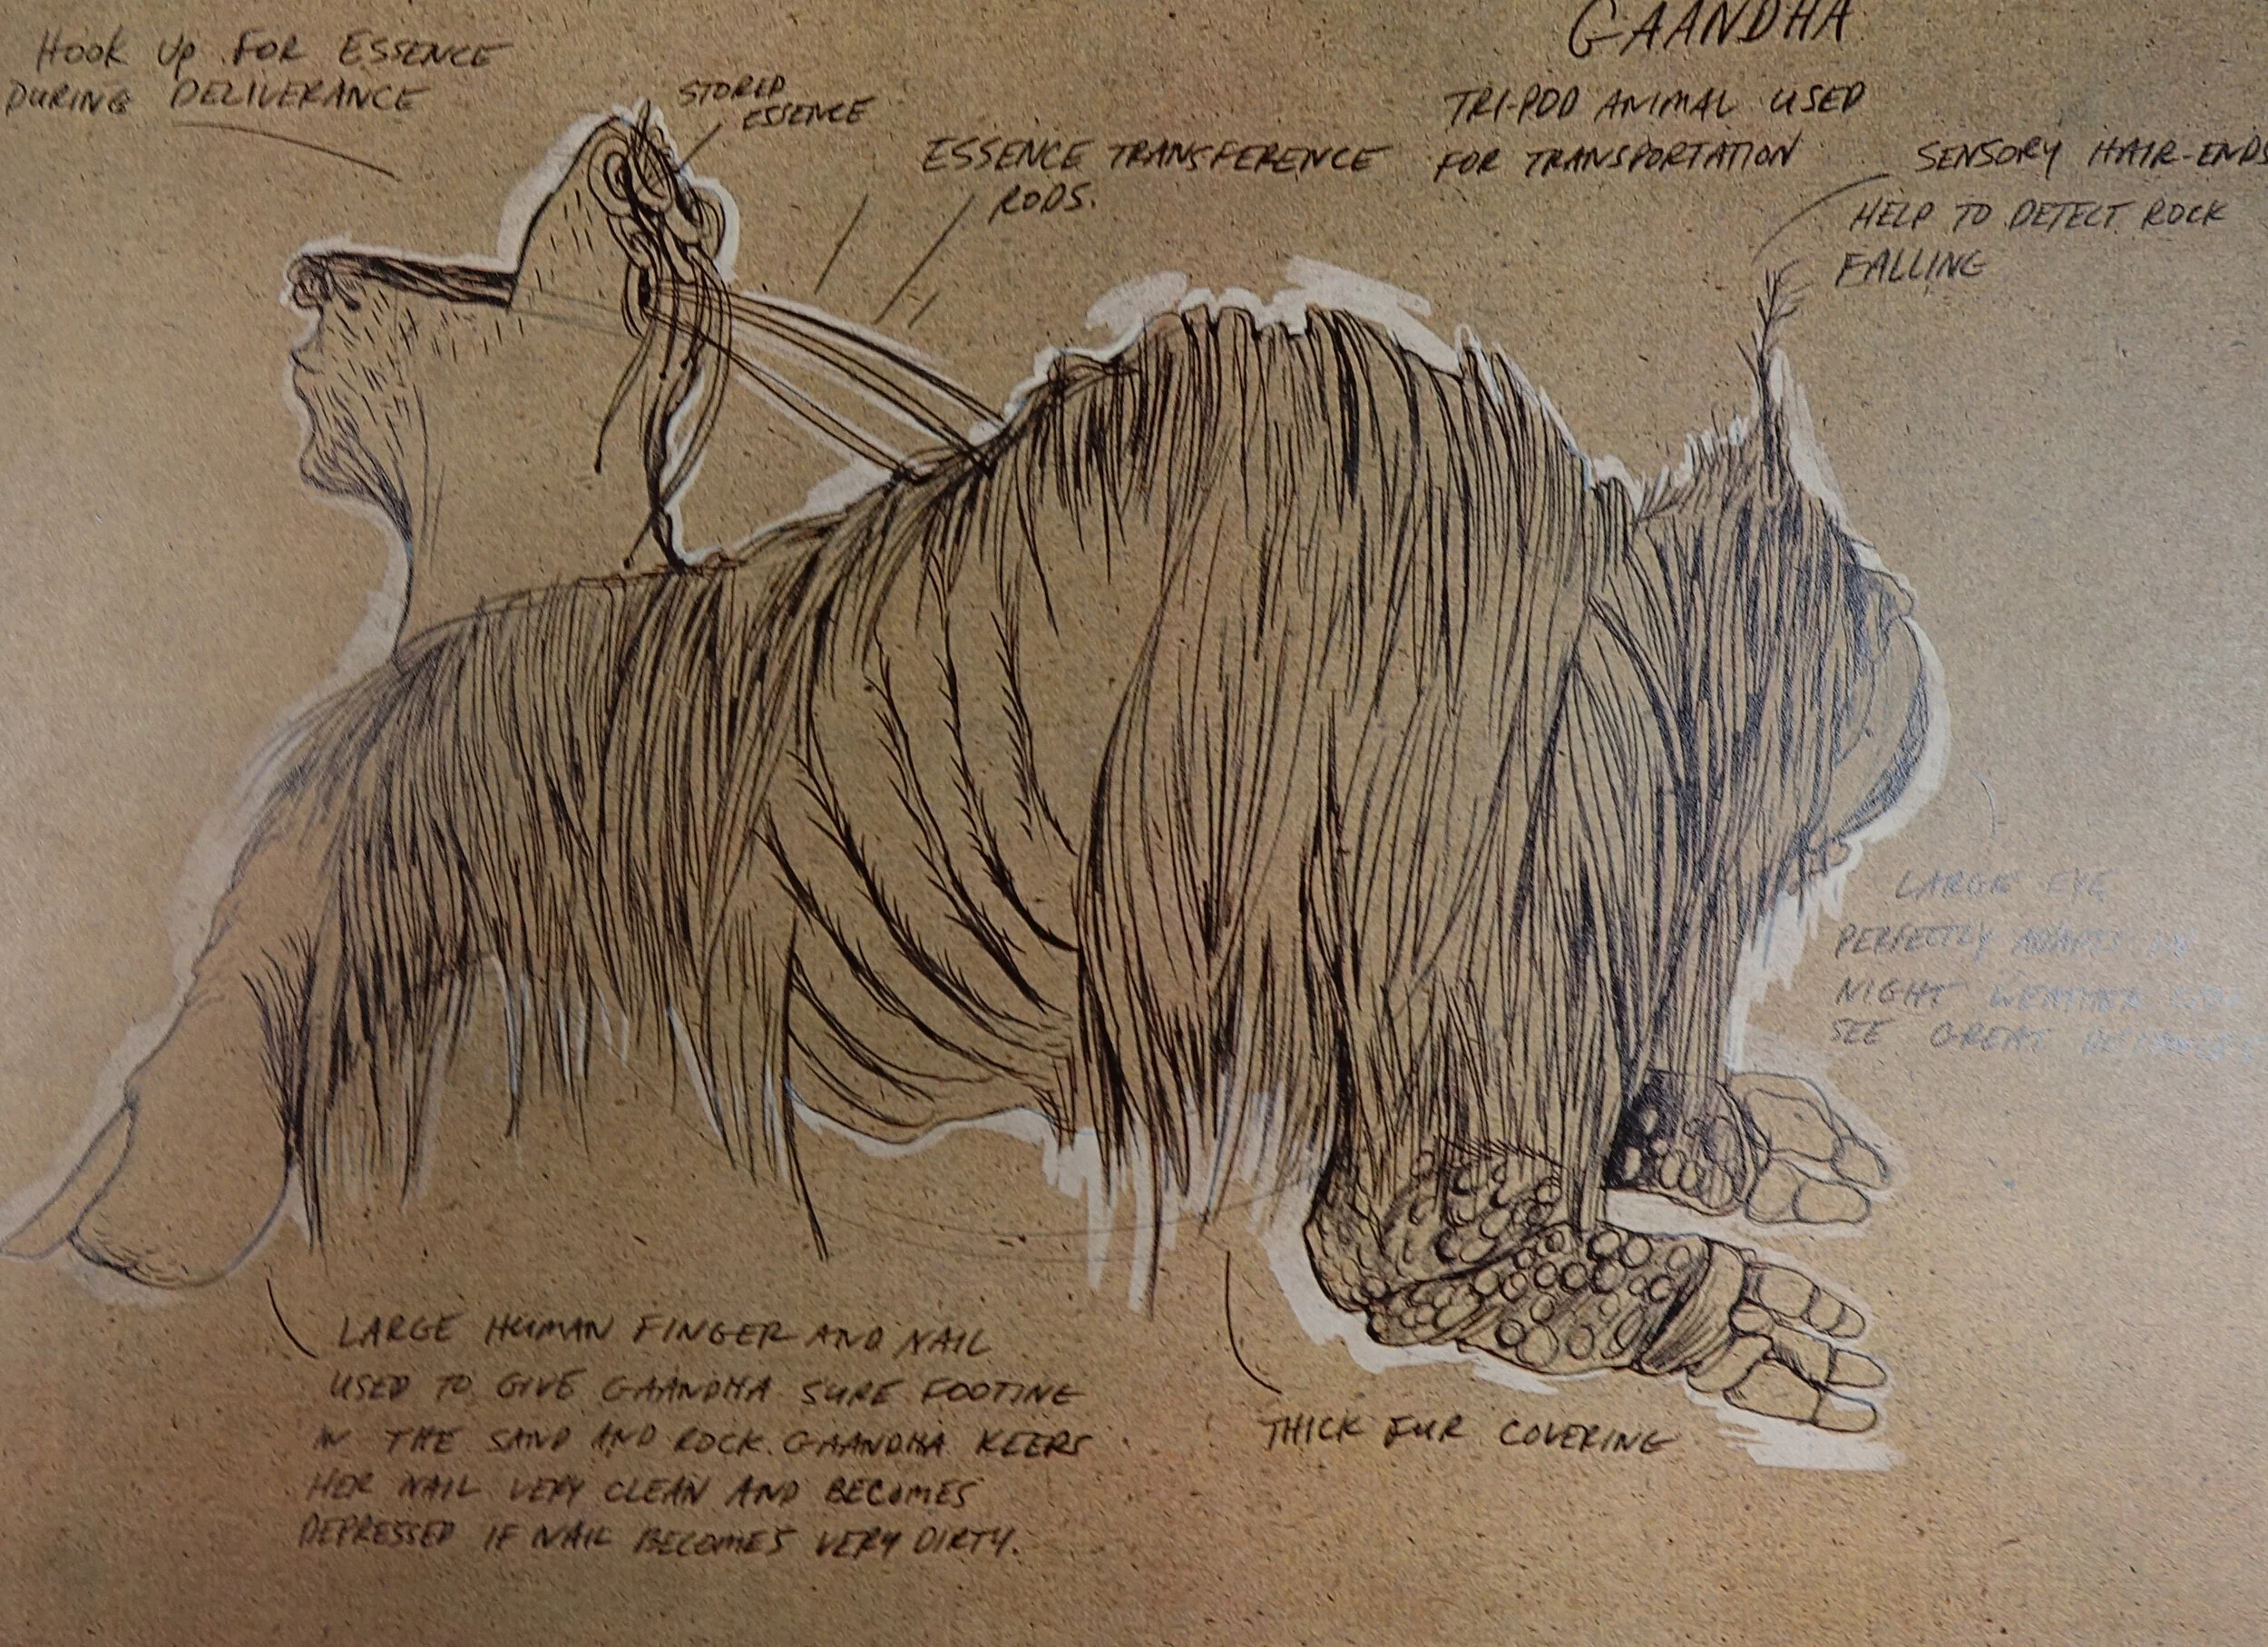 GAANDHA
TRI-POD ANIMAL USED
FOR TRANSPORTATION
HOOK UP FOR ESSENCE
DURING DELIVERANCE
STORED
ESSENCE
ESSENCE TRANSFERENCE
RODS.
SENSORY HAIR-ENDS
HELP TO DETECT ROCK
FALLING
LARGE EYE
PERFECTLY ADAPTS IN
NIGHT WEATHER
SEE GREAT
LARGE HUMAN FINGER AND NAIL
USED TO GIVE GAANDHA SURE FOOTING
IN THE SAND AND ROCK. GAANDHA KEEPS
HER NAIL VERY CLEAN AND BECOMES
DEPRESSED IF NAIL BECOMES VERY DIRTY.
THICK FUR COVERING